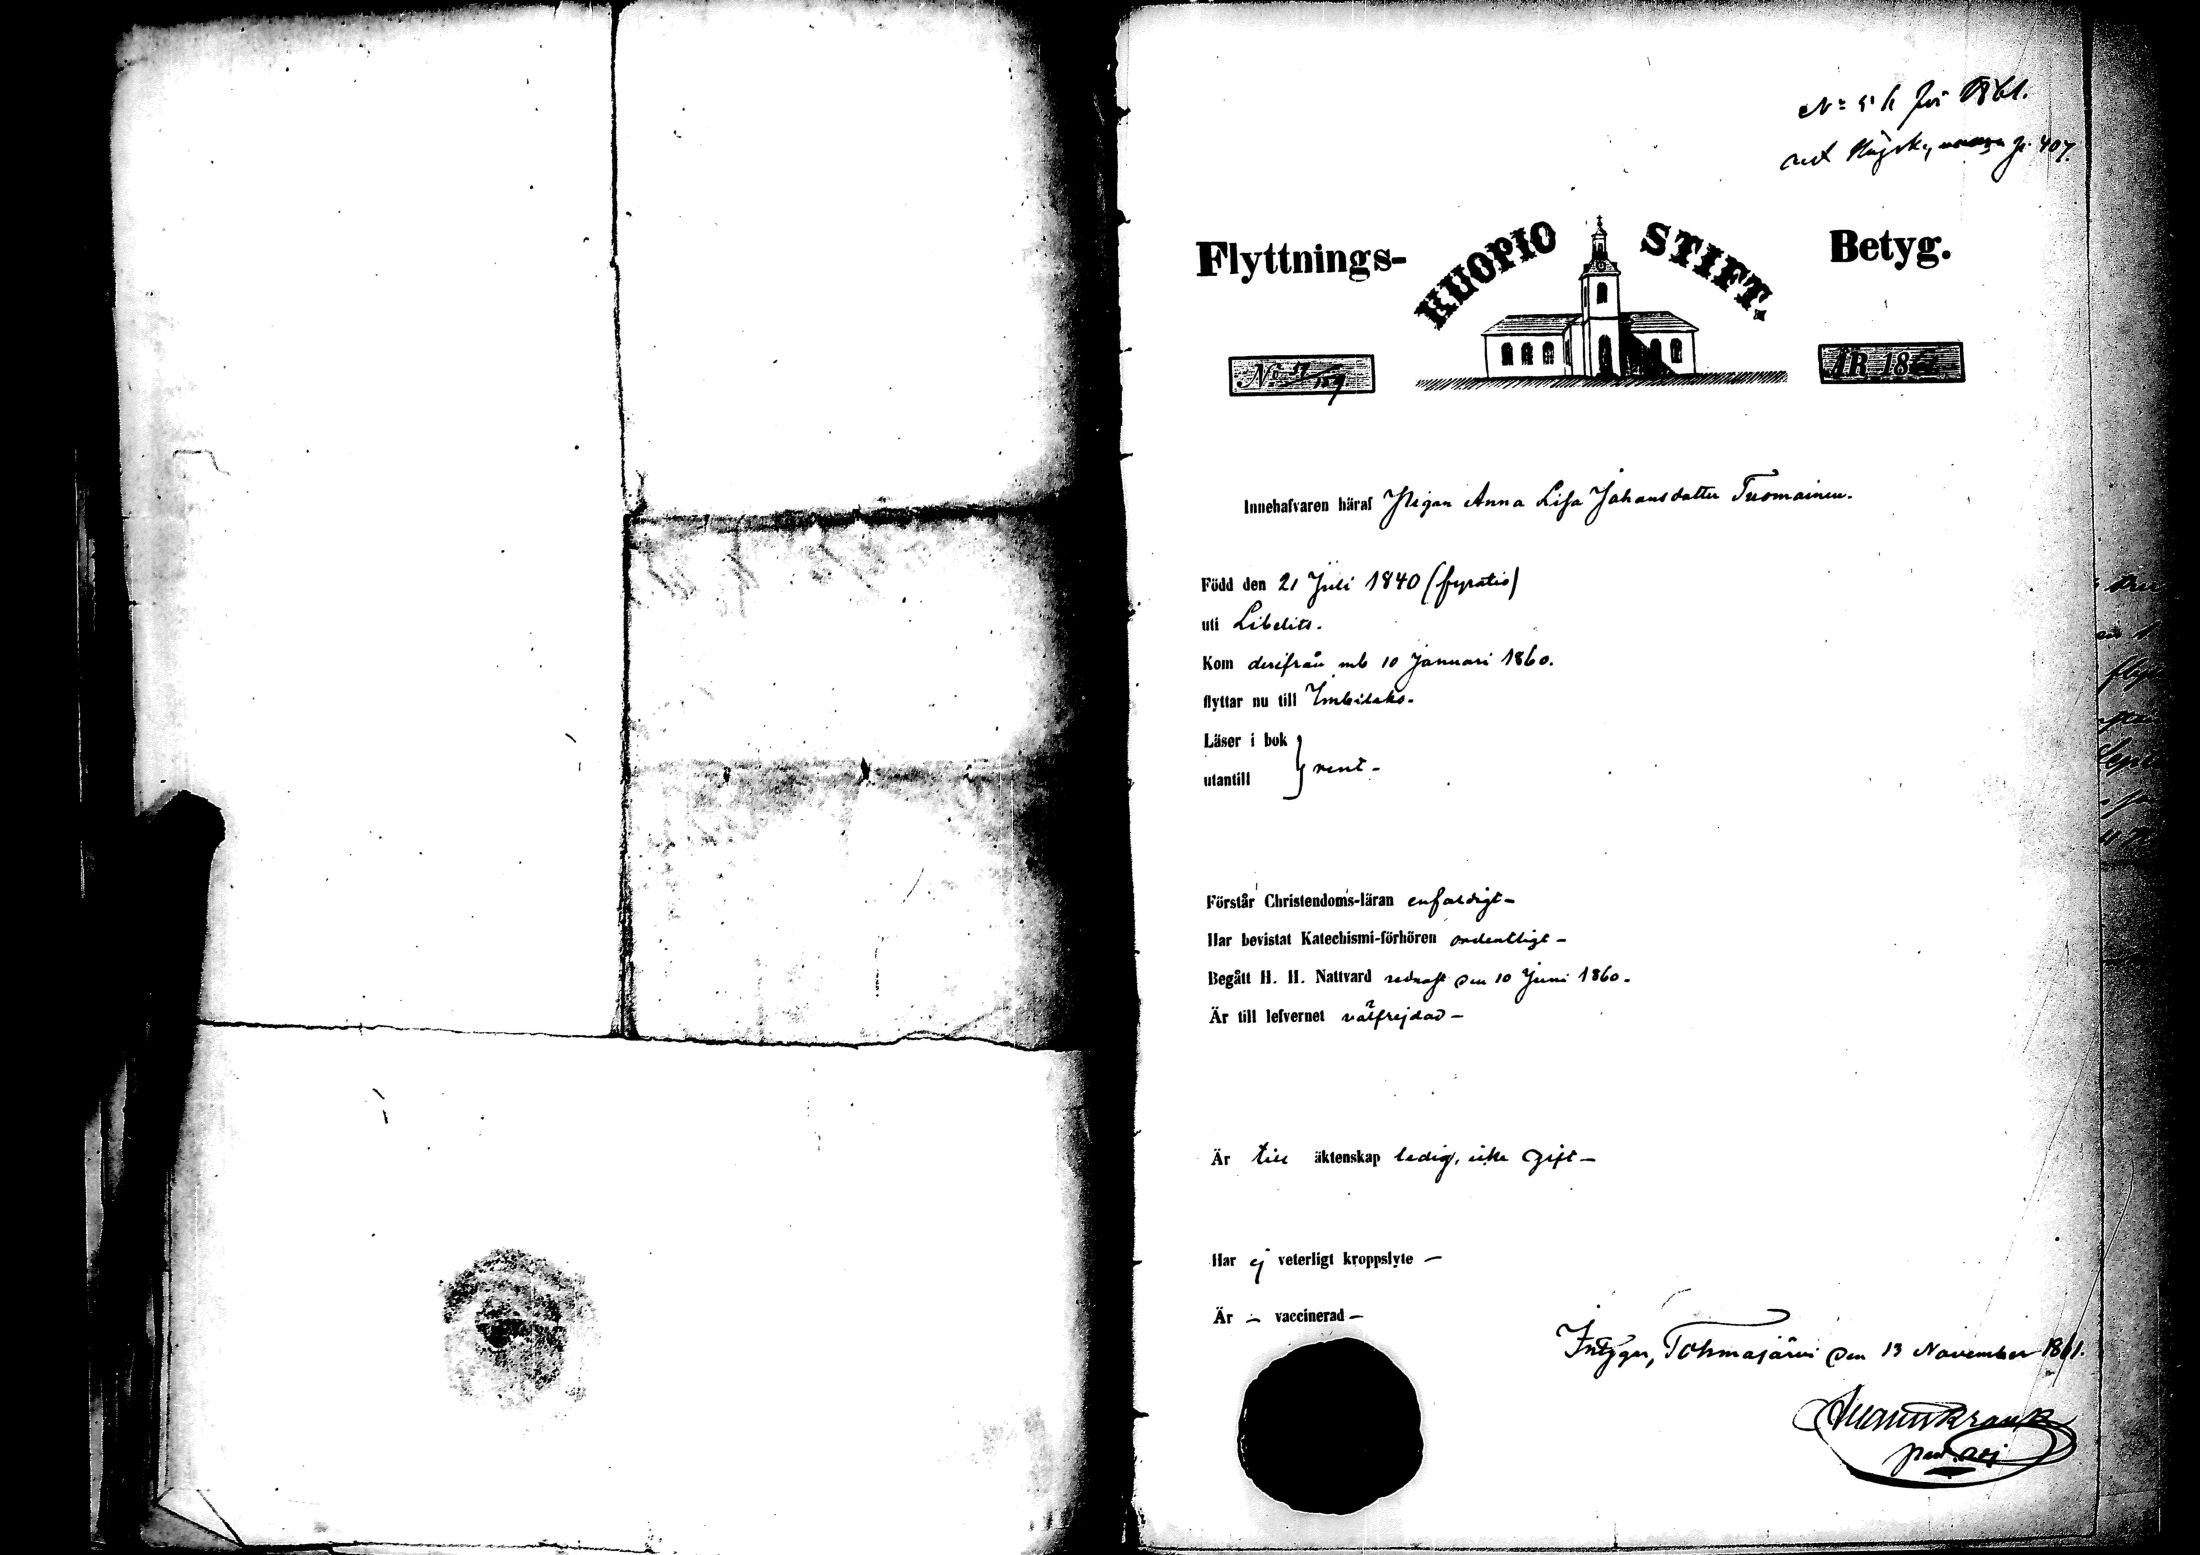 för 1861.
p. 407.
Flyttnings- KUOPIO STIFT. Betyg.
No 57/159 ÅR 1861
Innehafvaren häraf Pigan Anna Lisa Johansdotter Tuomainen.
Född den 21 Juli 1840 (fyratio)
uti Libelits.
Kom derifrån 10 Januari 1860.
flyttar nu till Imbilaks.
Läser i bok
utantill } rent –
Förstår Christendoms-läran enfaldigt –
Har bevistat Katechismi-förhören ordentligt –
Begått H. H. Nattvard sednast den 10 Juni 1860.
Är till lefvernet välfrejdad –
Är till äktenskap ledig, icke gift –
Har ej veterligt kroppslyte –
Är – vaccinerad –
Intygar, Tohmajärvi den 13 November 1861.